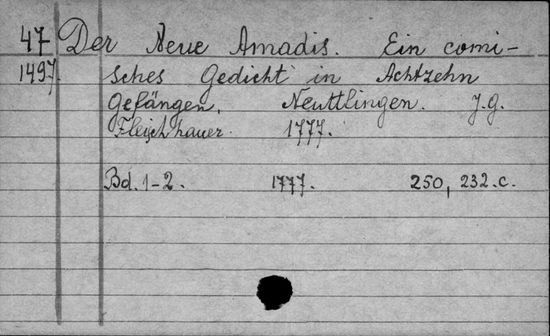 47 Der Neue Amadis. Ein comi-
1497. sches Gedicht in Achtzehn
Gefängen. Neuttlingen. J.G.
Fleischhauer. 1777.
Bd. 1-2. 1777. 250, 232.c.